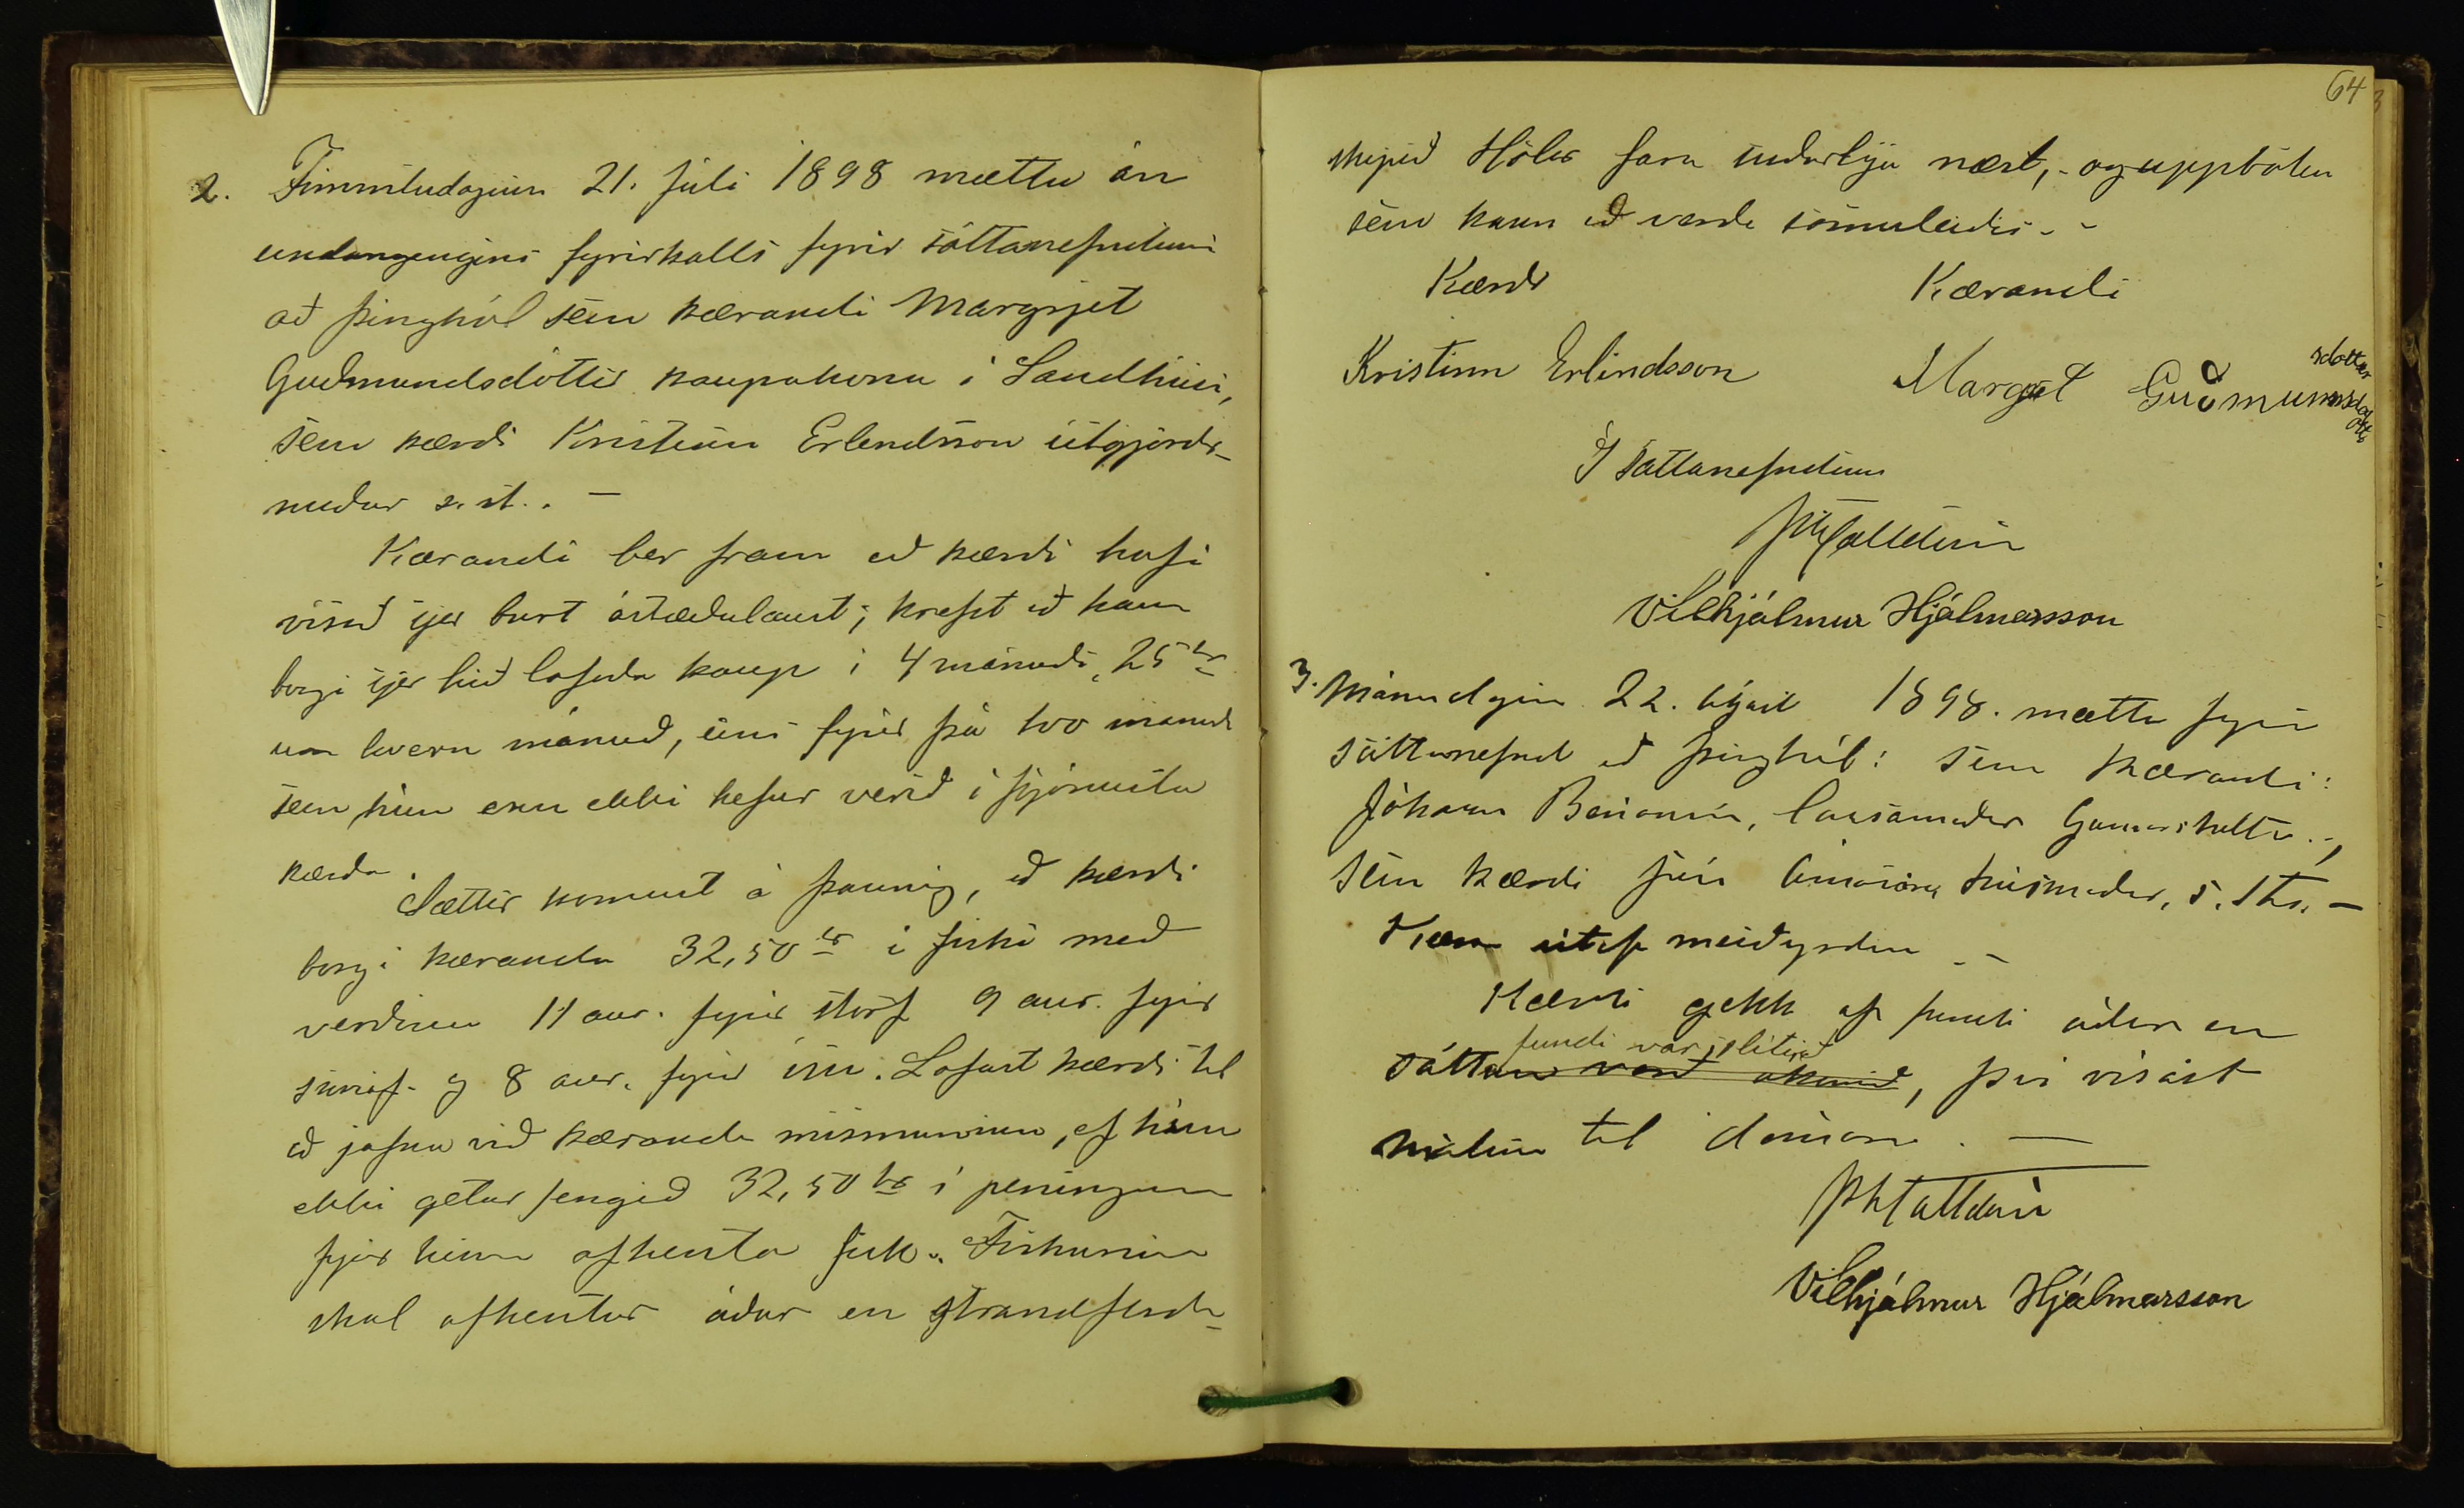 2. Fimmtudaginn 21. júli 1898 mættu án
undangengins fyrirkalls fyrir sáttanefndinni
að Þinghól sem kærandi Margrjet
Guðmundsdóttir kaupakona í Sandhúsi,
sem kærði Kristinn Erlendsson útgjörðar-
maður s. st. . –
Kærandi ber fram að kærði hafi
vísað sjer burt ástæðulaust; krefst að hann
borgi sjer hið lofaða kaup í 4 mánuði, 25 kr
um hvern mánuð, eins fyrir þá two mánuði
sem hún enn ekki hefur verið í þjónustu
kærða.
Sættir komust á þannig, að kærði
borgi kæranda 32,50 kr í fiski með
verðinu 11 aur. fyrir stórf 9 aur. fyrir
smáf. og 8 aur. fyrir ísu. Lofast kærði til
að jafna við kæranda mismuninn, ef hún
ekki getur fengið 32,50 kr í peningum
fyrir hinn afhenta fisk. Fiskurinn
skal afhentur áður en strandferða-
64
skipið Hólar fara suðurlýu næst, - og uppbótin
sem kann að verða sömuleiðis. -
Kærði Kærandi
Kristinn Erlindsson Margret Guðmunsdottir
Í sáttanefndinni
Vilhjálmur Hjálmarsson
3. Mánudaginn 22. ágúst 1898. mættu fyrir
sáttanefnd að Þinghól: sem kærandi:
Jóhann lausamaður
sem kærði Jón húsmaður, s. st. –
Kæra útaf meiðyrðum. –
Kærði gekk af fundi áður en
fundi var slitið
sátta, því vísast
málinu til dóms. –
Vilhjálmur Hjálmarsson